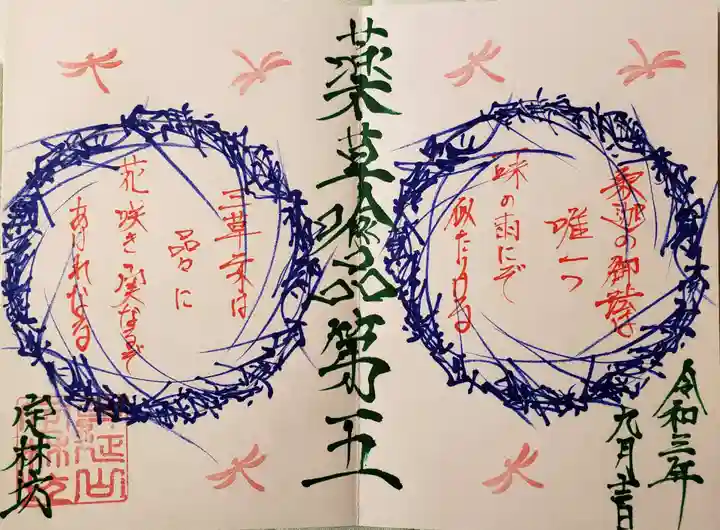 令和三年
釈迦の御法は
唯一つ
一味の雨にぞ
似たりける
薬草喩品第五
三草二木は
品々に
花咲き実なるぞ
あはれなる
定林坊